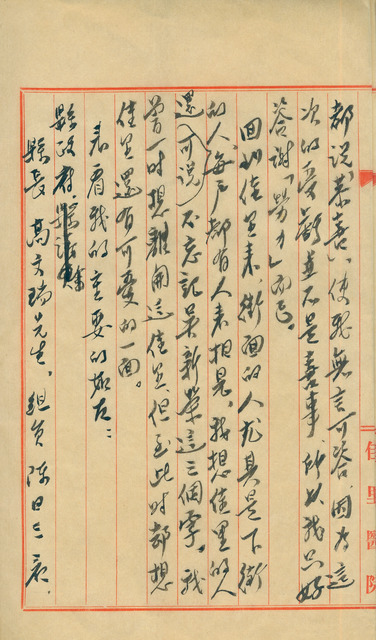 都說「恭喜」、使我無言可答、因为這
次的受難並不是喜事、所以我只好
答謝「勞力」而已。
回到佳里来、街面的人尤其是下街
的人、每戶都有人来相見、我想佳里的人
還(可說)不忘記吳新榮這三個字。我
曾一时想離開這佳里、但至此时都想
佳里還有可愛的一面。
来看我的主要的如左：
縣政府
縣長 高文瑞先生、組員 陳日三君、
佳里醫院